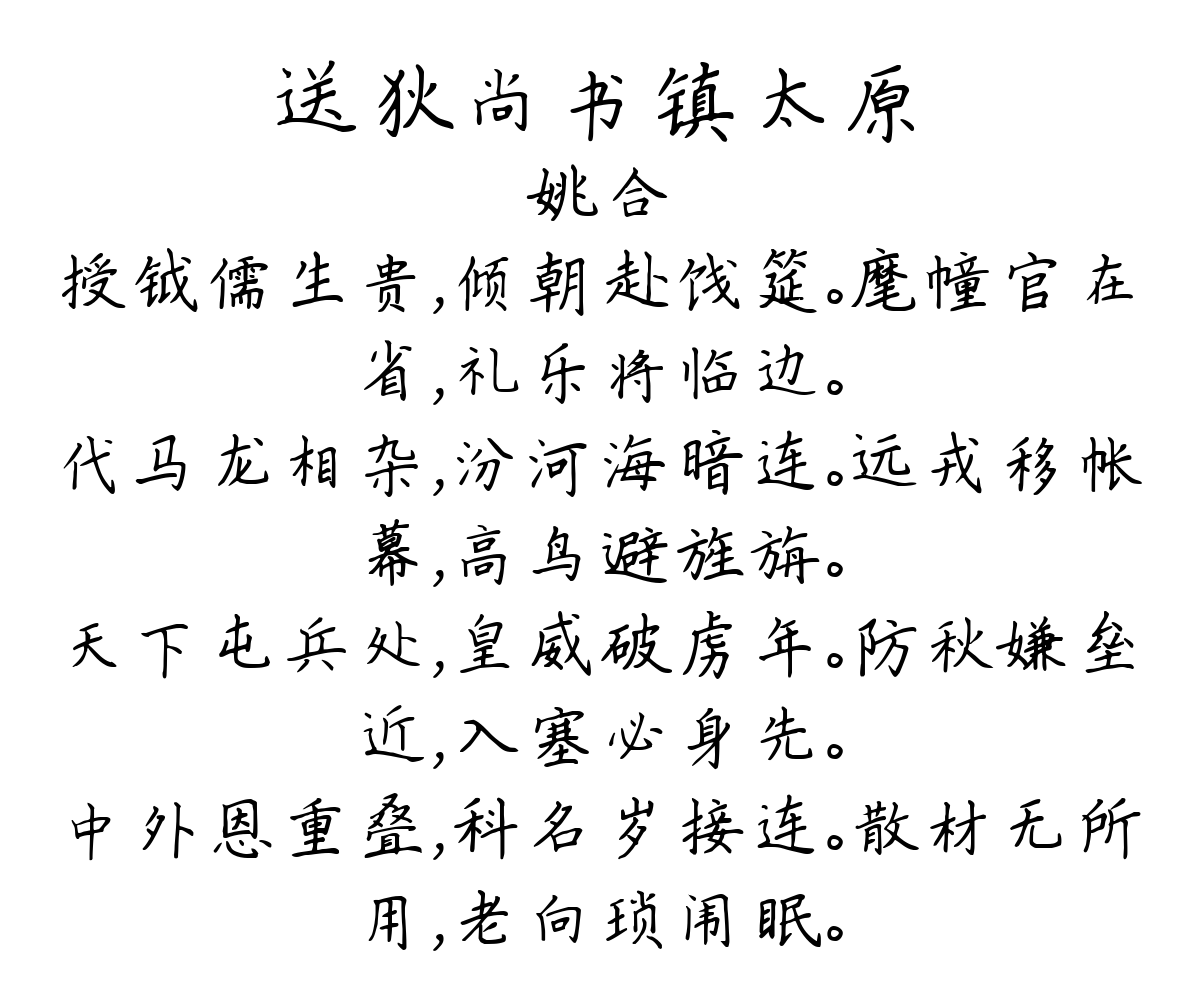 送狄尚书镇太原
姚合
授钺儒生贵,倾朝赴饯筵。麾幢官在
省,礼乐将临边。
代马龙相杂,汾河海暗连。远戎移帐
幕,高鸟避旌旃。
天下屯兵处,皇威破虏年。防秋嫌垒
近,入塞必身先。
中外恩重叠,科名岁接连。散材无所
用,老向琐闱眠。